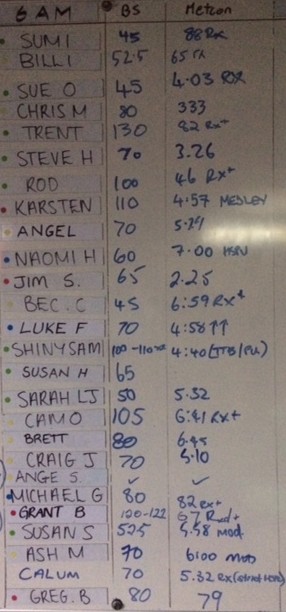 6 AM BS Metcon
SUMI 45 88 Rx
BILLI 52.5 65 rx
SUE O 45 4.03 RX
CHRIS M 80 333
TRENT 130 82 Rx+
STEVE H 70 3.26
ROD 100 46 Rx+
KARSTEN 110 4:57 MEDLEY
ANGEL 70
NAOMI H 60 7.00
JIM S. 65 2.25
BEC.C 45 6:59 Rx+
LUKE F 70 4:58 ↑↑
SHINYSAM 100-110 4:40 (TTB/PU)
SUSAN H 65
SARAH LJ 50 5.32
CAMO 105 6:41 Rx+
BRETT 80 6.45
CRAIG J 70 5.10
ANGE S. ✓ ✓
MICHAEL G 80 82 Rx+
GRANT B 100-122 67 Rx+
SUSAN S 52.5 5.58 mod.
ASH M 70 6:00 MOD
CALUM 70 5.32 Rx
GREG.B 80 79